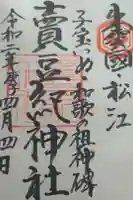 出雲國・松江
子宝いわ・和歌の祖神碑
賣豆紀神社
令和二年 四月四日